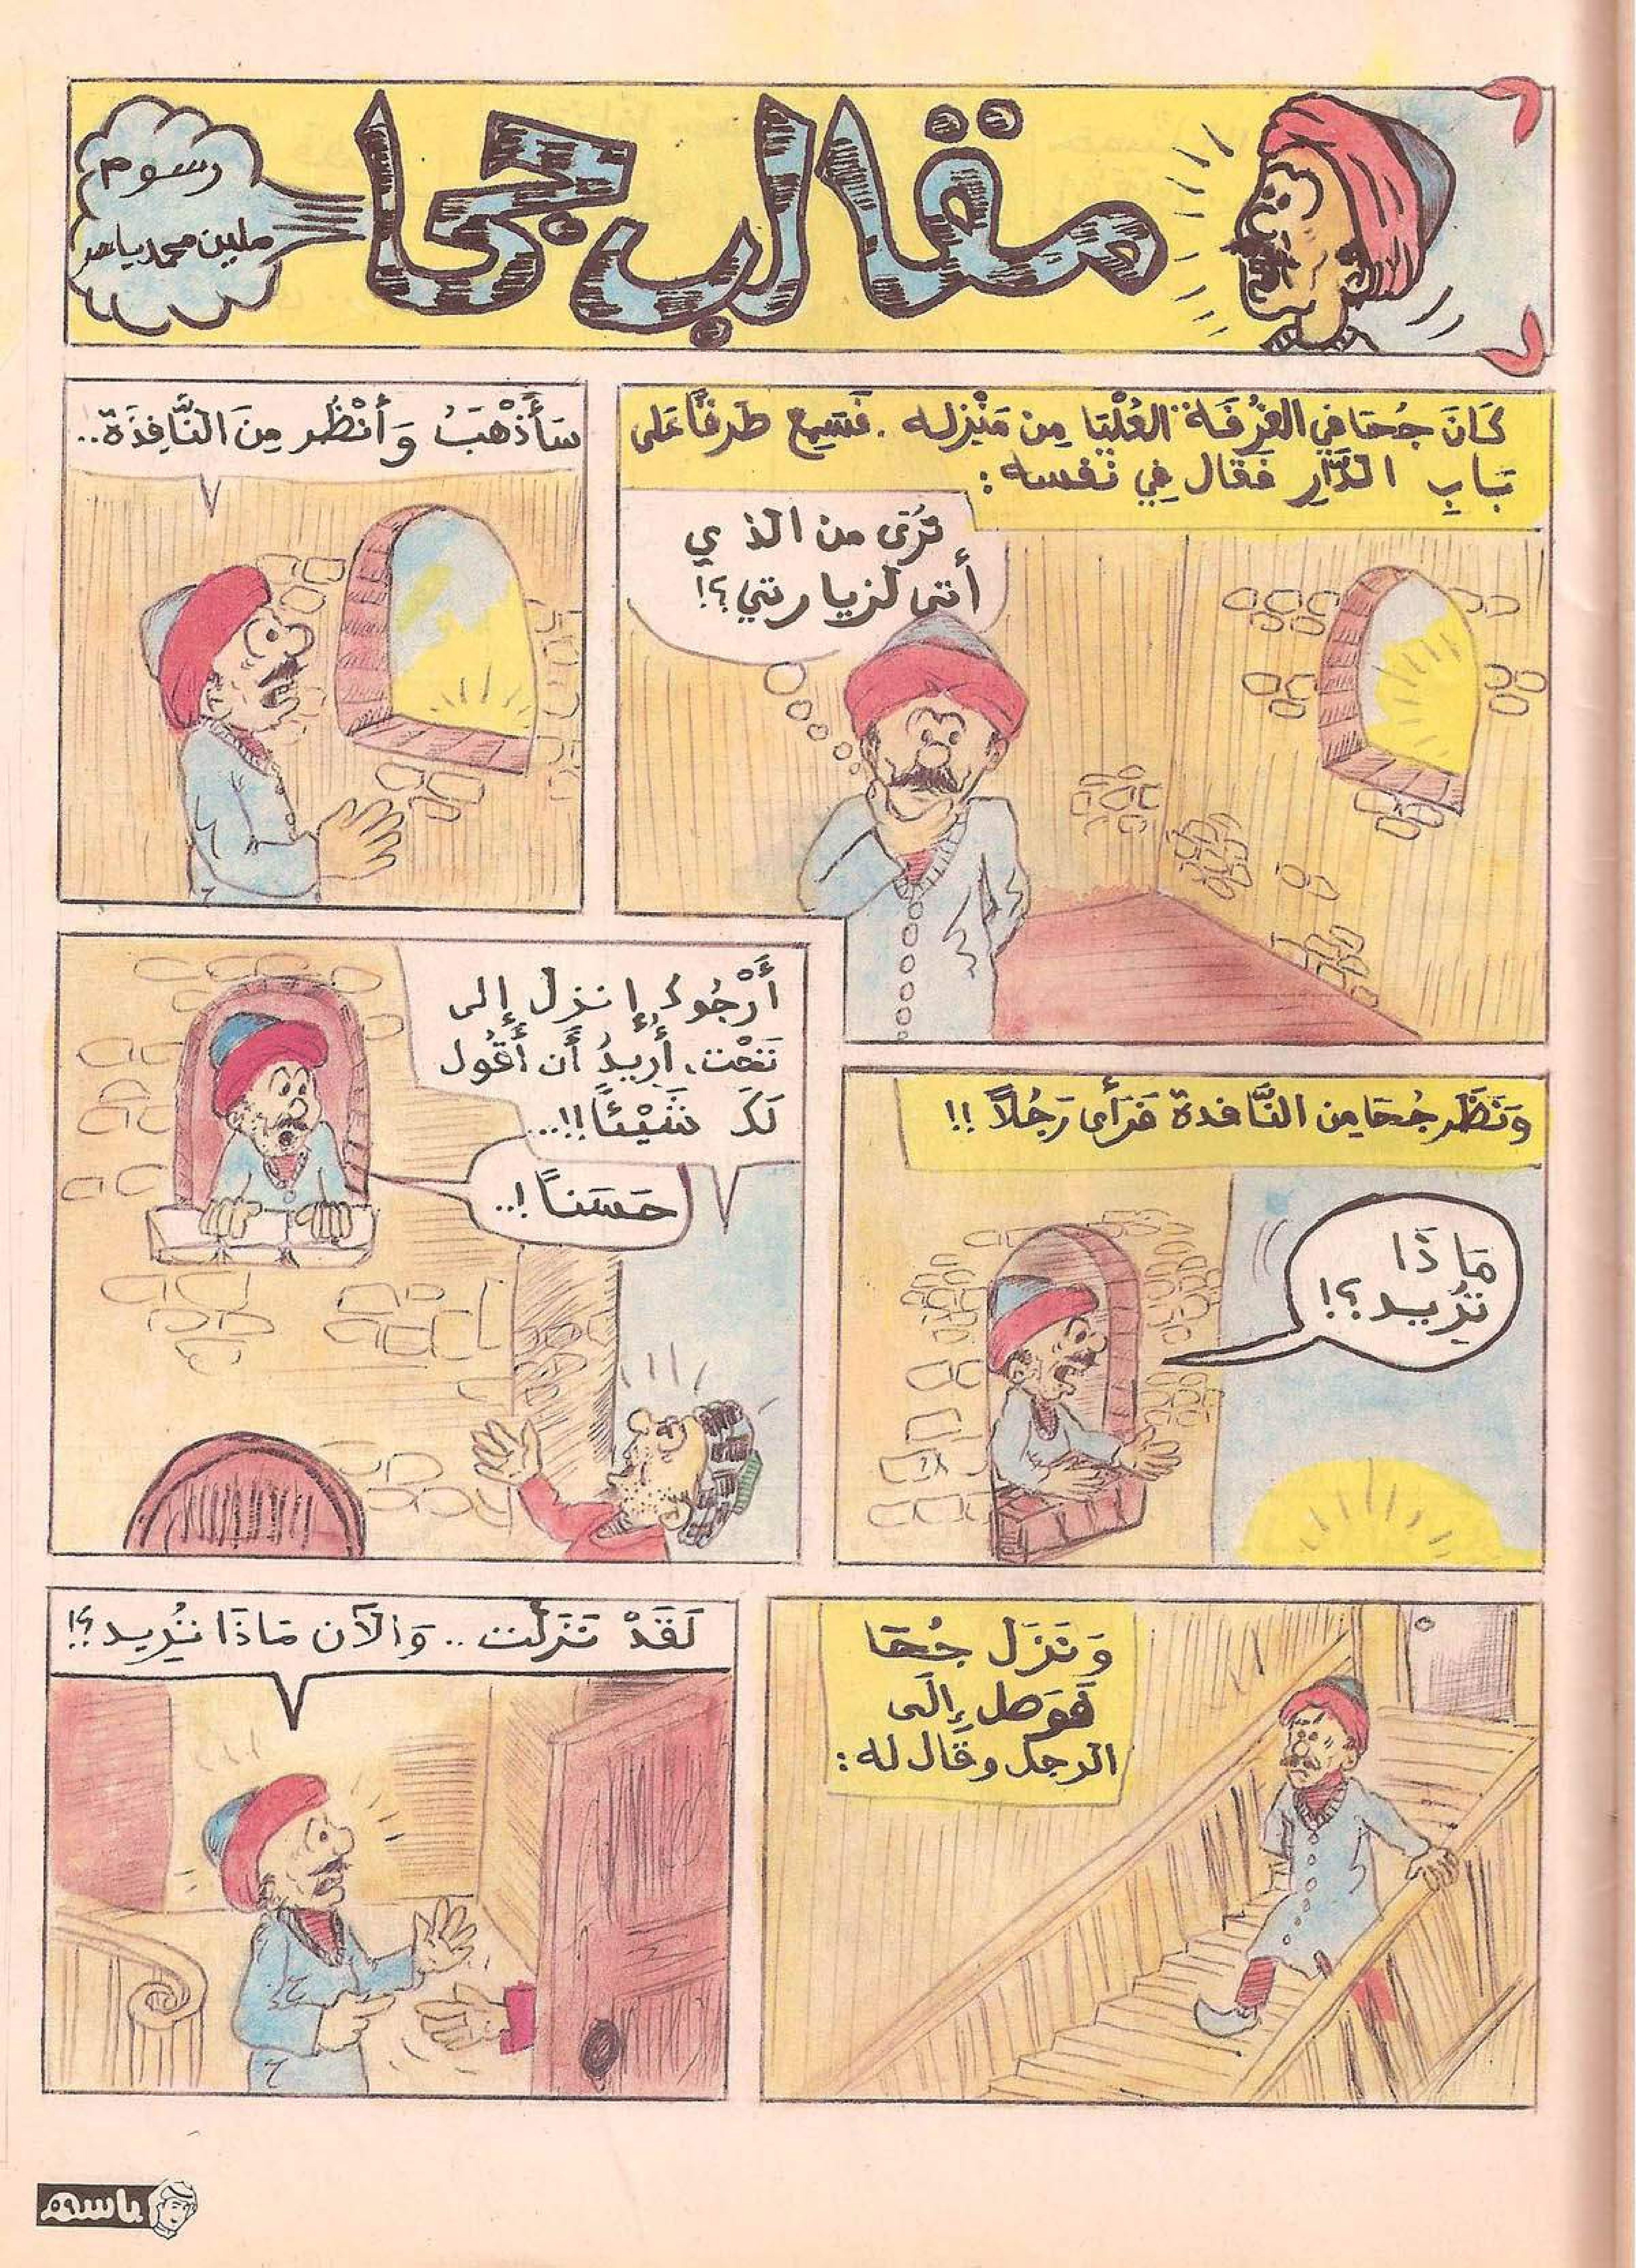 مقالب جحا
رسوم
ملين محمد ياسر
كَانَ جُحَا فِي الغُرْفَة العُلْيَا مِن مَنْزِله . فَسَمِع طَرقًا عَلى
بَابِ الدَّارِ فَقَال فِي نَفسه :
تُرَى من الذي
أتى لزيارتي؟!
سَأَذْهَبُ وَأَنْظُر مِنَ النَّافِذَة..
وَنَظَر جُحَا مِن النَّافدة فَرَأى رَجُلاً !!
مَاذَا
تُرِيد؟!
أَرْجُوك إنزل إلى
تَحْت، أُرِيدُ أَن أَقُول
لَكَ شَيْئاً!!...
حَسَناً !..
وَنَزَل جُحَا
فَوَصل إلَى
الرجل وقَال له :
لَقَدْ نَزَلْت .. وَالآن مَاذَا تُرِيد؟!
باسم